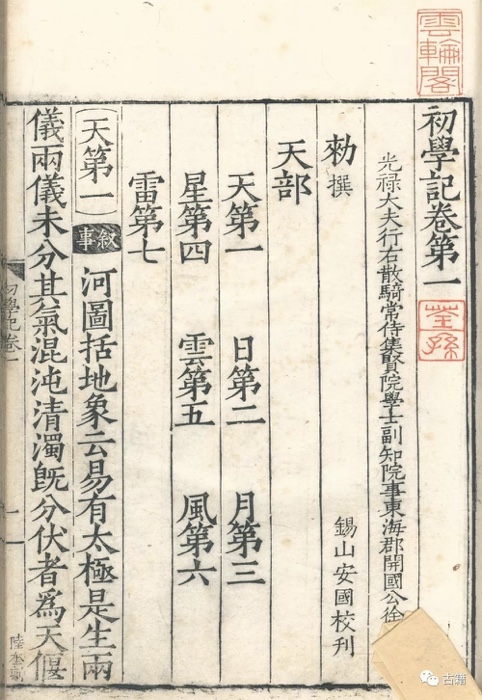 雲輪閣
初學記卷第一
荃孫
光禄大夫行右散騎常侍集賢院學士副知院事東海郡開國公徐
勑撰 錫山安國校刊
天部
天第一 日第二 月第三
星第四 雲第五 風第六
雷第七
天第一 叙事 河圖括地象云易有太極是生兩
儀兩儀未分其氣混沌清濁旣分伏者爲天偃
學記卷一
古籍